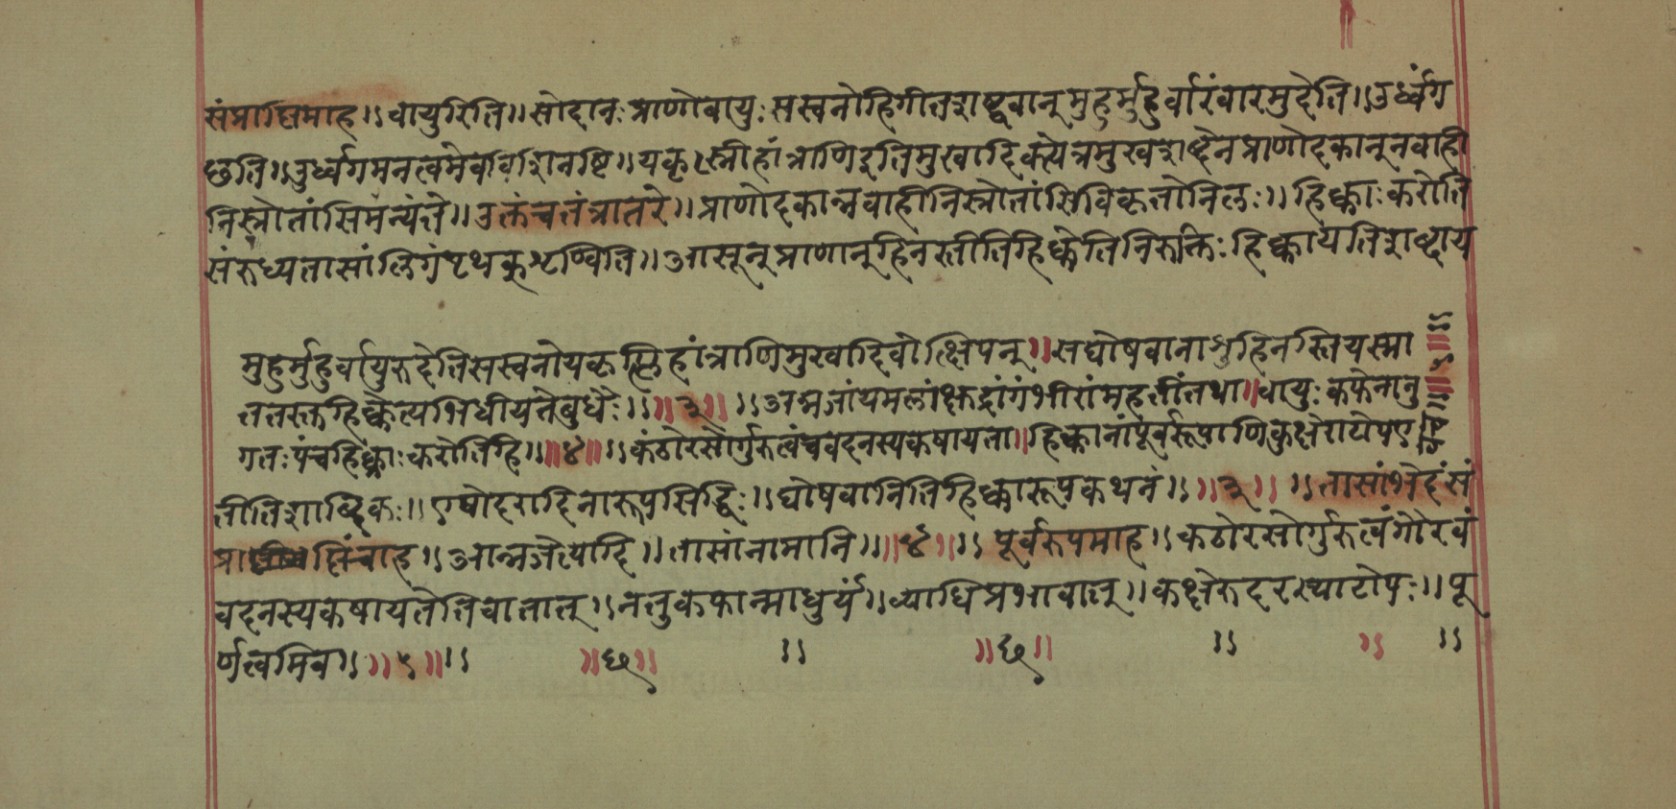 संप्राप्तिमाह ॥ वायुरिति ॥ सोदानः प्राणोवायुः सस्वनोहिगीतिशब्दवान् मुहुर्मुहुर्वारंवारमुदेति ॥ उर्ध्वंग
छति ॥ उर्ध्वगमनत्वमेव विशिनष्टि ॥ यकृत्स्लीहांत्राणि इतिमुखादिकत्येत्रमुखशब्देनप्राणोदकानूनवाही
निस्रोतांसिमन्यंते ॥ उक्तंचतंत्रातरे ॥ प्राणोदकान्नवाहीनिस्रोतांसिविकृतोनिलः ॥ हिक्काः करोति
संरुध्यतासांलिंगंपृथक्शृण्विति ॥ आसून् प्राणान् हिनस्तीतिहिक्केतिनिरुक्तिः हिक्कायतिशब्दाय
मुहुर्मुहुर्वायुरुदेतिसस्वनोयकृत्प्लिहांत्राणिमुखादिवोत्क्षिपन् ॥ सघोषवानाशुहिनस्तियस्मा
ततस्तहिक्केत्यभिधीयतेबुधैः ॥ ॥ ३ ॥ ॥ अन्नजांयमलांक्षुद्रांगंभीरांमहतींतथा ॥ वायुः कफेनानु
गतः पंचहिक्काः करोतिहि ॥ ॥ ४ ॥ ॥ कंठोरसोर्गुरुत्वंचवदनस्यकषायता ॥ हिक्कानांपूर्वरूपाणिकुक्षेराटोपए
तीतिशाब्दिकः ॥ पृषोदरादिनारूपसिद्धिः ॥ घोषवानितिहिक्कारूपकथनं ॥ ॥ ३ ॥ ॥ तासांभेदंसं
प्राप्तिंचाह ॥ आन्नजेत्यादि ॥ तासांनामानि ॥ ॥ ४ ॥ ॥ पूर्वरूपमाह ॥ कंठोरसोर्गुरुत्वंगौरवं
वदनस्यकषायतेतिवातात् ॥ नतुकफान्माधुर्यं ॥ व्याधिप्रभावात् ॥ कक्षेरुदरस्थाटोपः ॥ पू
र्णत्वमिव ॥ ॥ ५ ॥ ॥ ॥ छ ॥ ॥ ॥ छ ॥ ॥ ॥ ॥